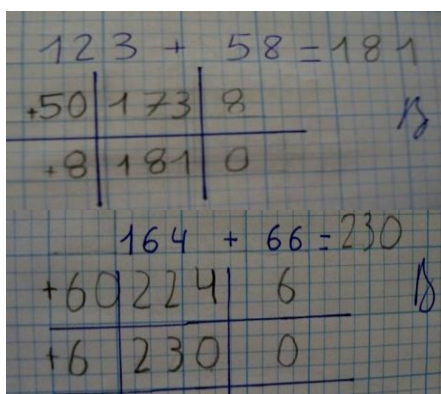 123 + 58 = 181
+50 173 8
+8 181 0
164 + 66 = 230
+60 224 6
+6 230 0